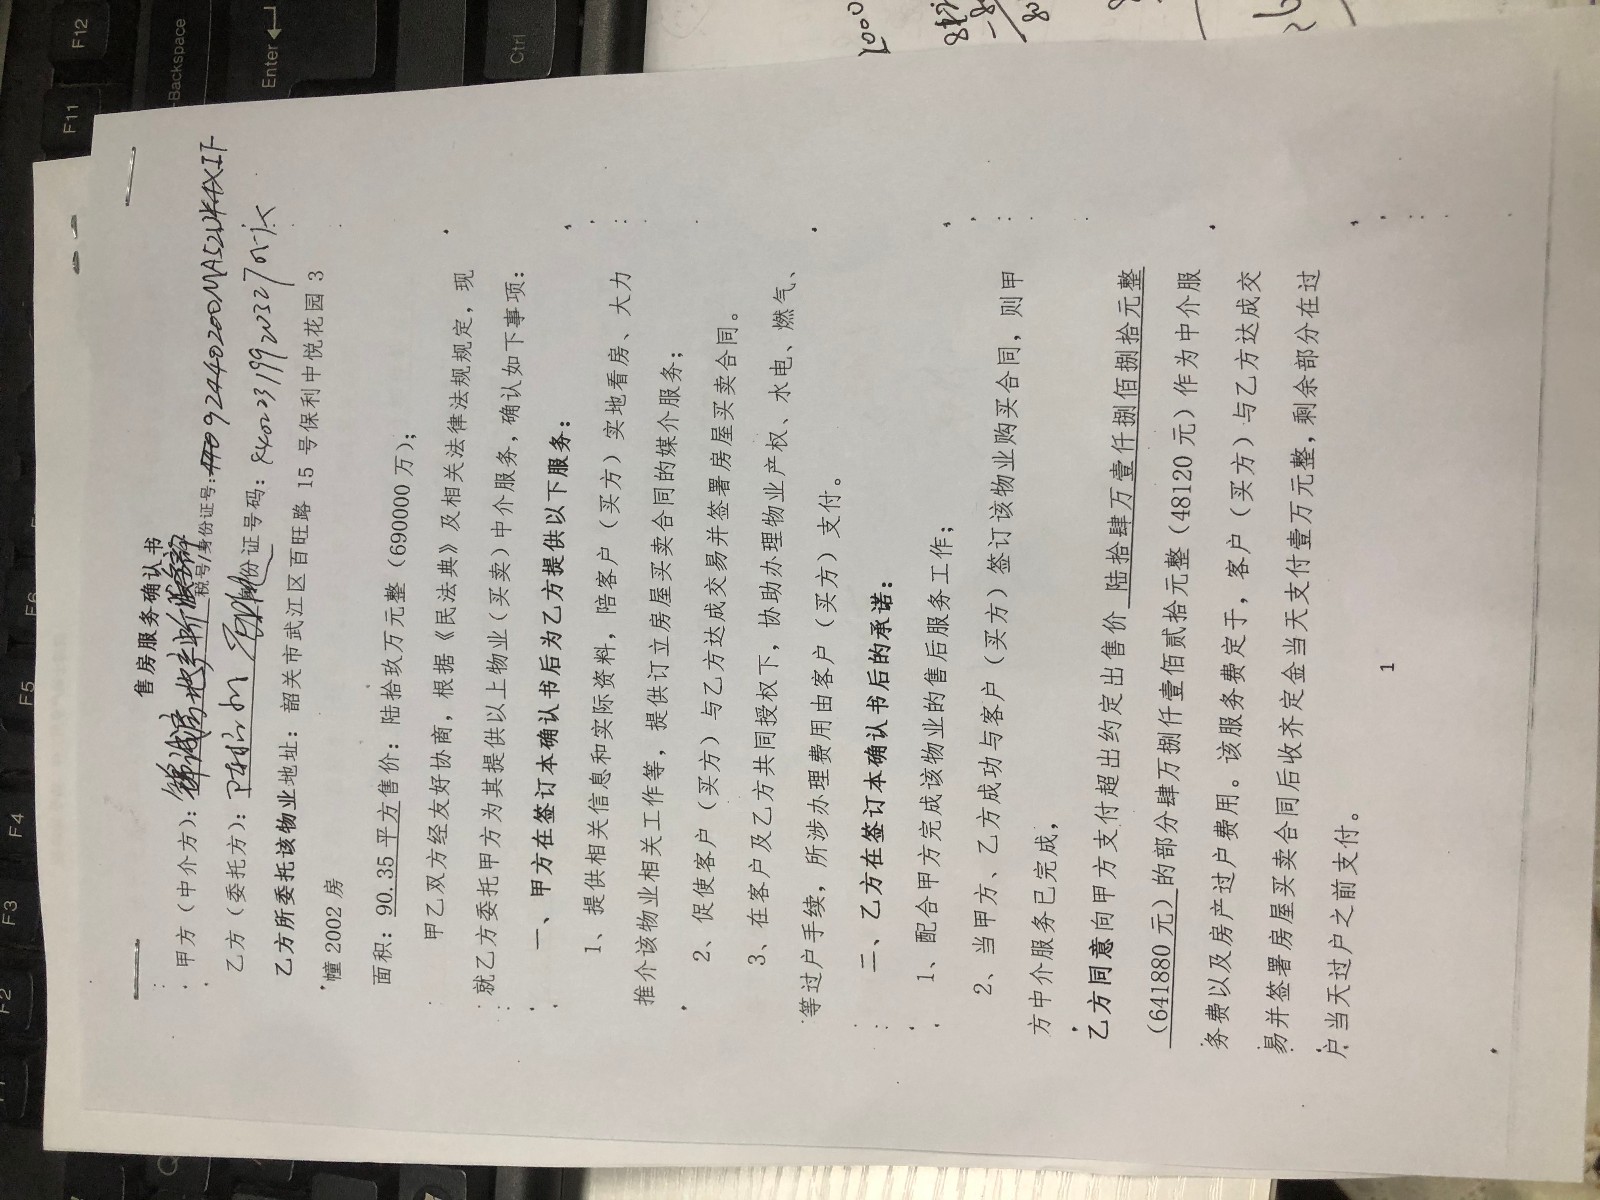 售房服务确认书
甲方（中介方）：
税号/身份证号：92440200MA52
乙方（委托方）：
份证号码：
乙方所委托该物业地址：韶关市武江区百旺路 15 号保利中悦花园 3
幢 2002 房
面积：90.35 平方售价：陆拾玖万元整（690000 万）；
甲乙双方经友好协商，根据《民法典》及相关法律法规规定，现
就乙方委托甲方为其提供以上物业（买卖）中介服务，确认如下事项：
一、甲方在签订本确认书后为乙方提供以下服务：
1、提供相关信息和实际资料，陪客户（买方）实地看房、大力
推介该物业相关工作等，提供订立房屋买卖合同的媒介服务；
2、促使客户（买方）与乙方达成交易并签署房屋买卖合同。
3、在客户及乙方共同授权下，协助办理物业产权、水电、燃气、
等过户手续，所涉办理费用由客户（买方）支付。
二、乙方在签订本确认书后的承诺：
1、配合甲方完成该物业的售后服务工作；
2、当甲方、乙方成功与客户（买方）签订该物业购买合同，则甲
方中介服务已完成，
乙方同意向甲方支付超出约定出售价 陆拾肆万壹仟捌佰捌拾元整
（641880 元）的部分肆万捌仟壹佰贰拾元整（48120 元）作为中介服
务费以及房产过户费用。该服务费定于，客户（买方）与乙方达成交
易并签署房屋买卖合同后收齐定金当天支付壹万元整，剩余部分在过
户当天过户之前支付。
1
F12
F11
Backspace
Enter
Ctrl
F6
F5
F4
F3
F2
F1
Q
1000